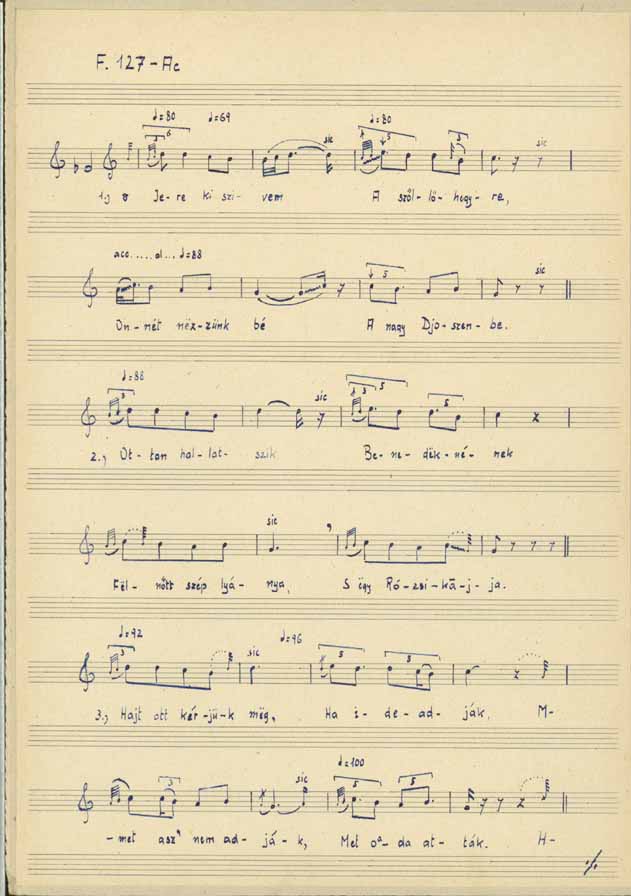 F. 127 - Ac
♩=80 ♩=69 sic ♩=80 sic
1.) Je- re ki szi- vem A szől- lő- hegy- re,
acc.....al... ♩=88 sic
On- nét néz- zünk bé A nagy Djo- szen- be.
♩=88 sic
2., Ot- tan hal- lat- szik Be- ne- dëk- né- nek
sic
Fël- nőtt szép lyá- nya, S így Ró- zsi- kā- j- ja.
♩=92 sic ♩=96
3.) Hajt ott kér- jü- k mëg, Ha i- de- ad- ják, M-
sic ♩=100
-met asz' nem ad- já- k, Met oª- da at- ták. H-
./.